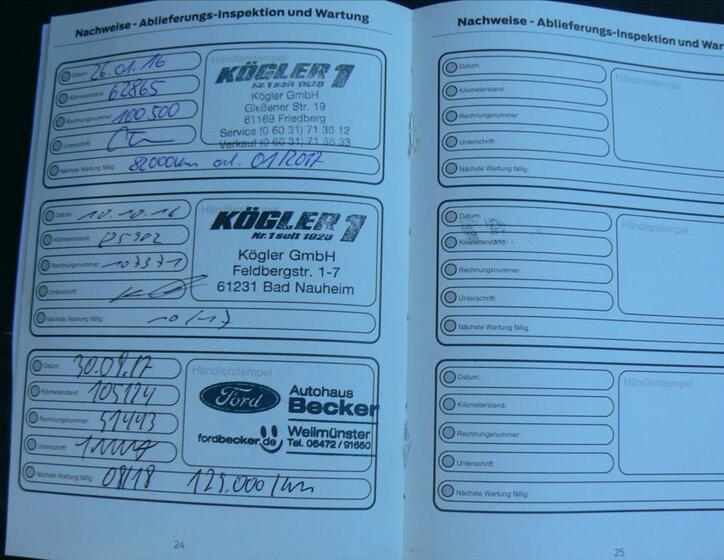 Nachweise - Ablieferungs-Inspektion und Wartung
Datum: 26.01.16
Kilometerstand: 62865
Rechnungsnummer: 100 500
Unterschrift:
Nächste Wartung fällig: 82000km od. 01/2017
Händlerstempel
KÖGLER 1
Nr. 1 seit 1928
Kögler GmbH
Gießener Str. 19
61169 Friedberg
Service (0 60 31) 71 36 12
Verkauf (0 60 31) 71 36 33
Datum: 10.10.16
Kilometerstand:
Rechnungsnummer: 107371
Unterschrift:
Nächste Wartung fällig: 10/17
KÖGLER 1
Nr. 1 seit 1928
Kögler GmbH
Feldbergstr. 1-7
61231 Bad Nauheim
Datum: 30.09.17
Kilometerstand: 105124
Rechnungsnummer: 51443
Unterschrift:
Nächste Wartung fällig: 09/18 125.000 km
Händlerstempel
Ford
Autohaus
Becker
fordbecker.de
Weilmünster
Tel. 06472 / 91650
24
Nachweise - Ablieferungs-Inspektion und War
Datum:
Kilometerstand:
Rechnungsnummer:
Unterschrift:
Nächste Wartung fällig:
Händlerstempel
Datum:
Kilometerstand:
Rechnungsnummer:
Unterschrift:
Nächste Wartung fällig:
Händlerstempel
Datum:
Kilometerstand:
Rechnungsnummer:
Unterschrift:
Nächste Wartung fällig:
Händlerstempel
25